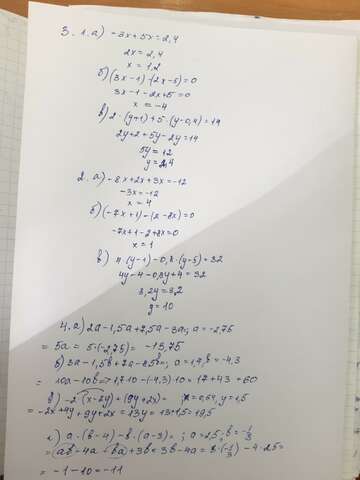 3. 1. а) -3x+5x=2,4
2x=2,4
x=1,2
б) (3x-1)-(2x-5)=0
3x-1-2x+5=0
x=-4
в) 2·(y+1)+5·(y-0,4)=14
2y+2+5y-2y=14
5y=12
y=2,4
2. а) -8x+2x+3x=-12
-3x=-12
x=4
б) (-7x+1)-(2-8x)=0
-7x+1-2+8x=0
x=1
в) 4·(y-1)-0,8·(y-5)=32
4y-4-0,8y+4=32
3,2y=3,2
y=10
4. а) 2a-1,5a+7,5a-3a; a=-2,75
=5a=5·(-2,75)=-13,75
б) 3a-1,5b+7a-8,5b; a=1,7, b=-4,3
=10a-10b=1,7·10-(-4,3)·10=17+43=60
в) -2(x-2y)+(9y+2x)= x=0,64, y=1,5
=-2x+4y+9y+2x=13y=13·1,5=19,5
г) a·(b-4)-b·(a-3)= ; a=2,5, b=-1/3
=ab-4a-ba+3b=3b-4a=3·(-1/3)-4·2,5=
=-1-10=-11